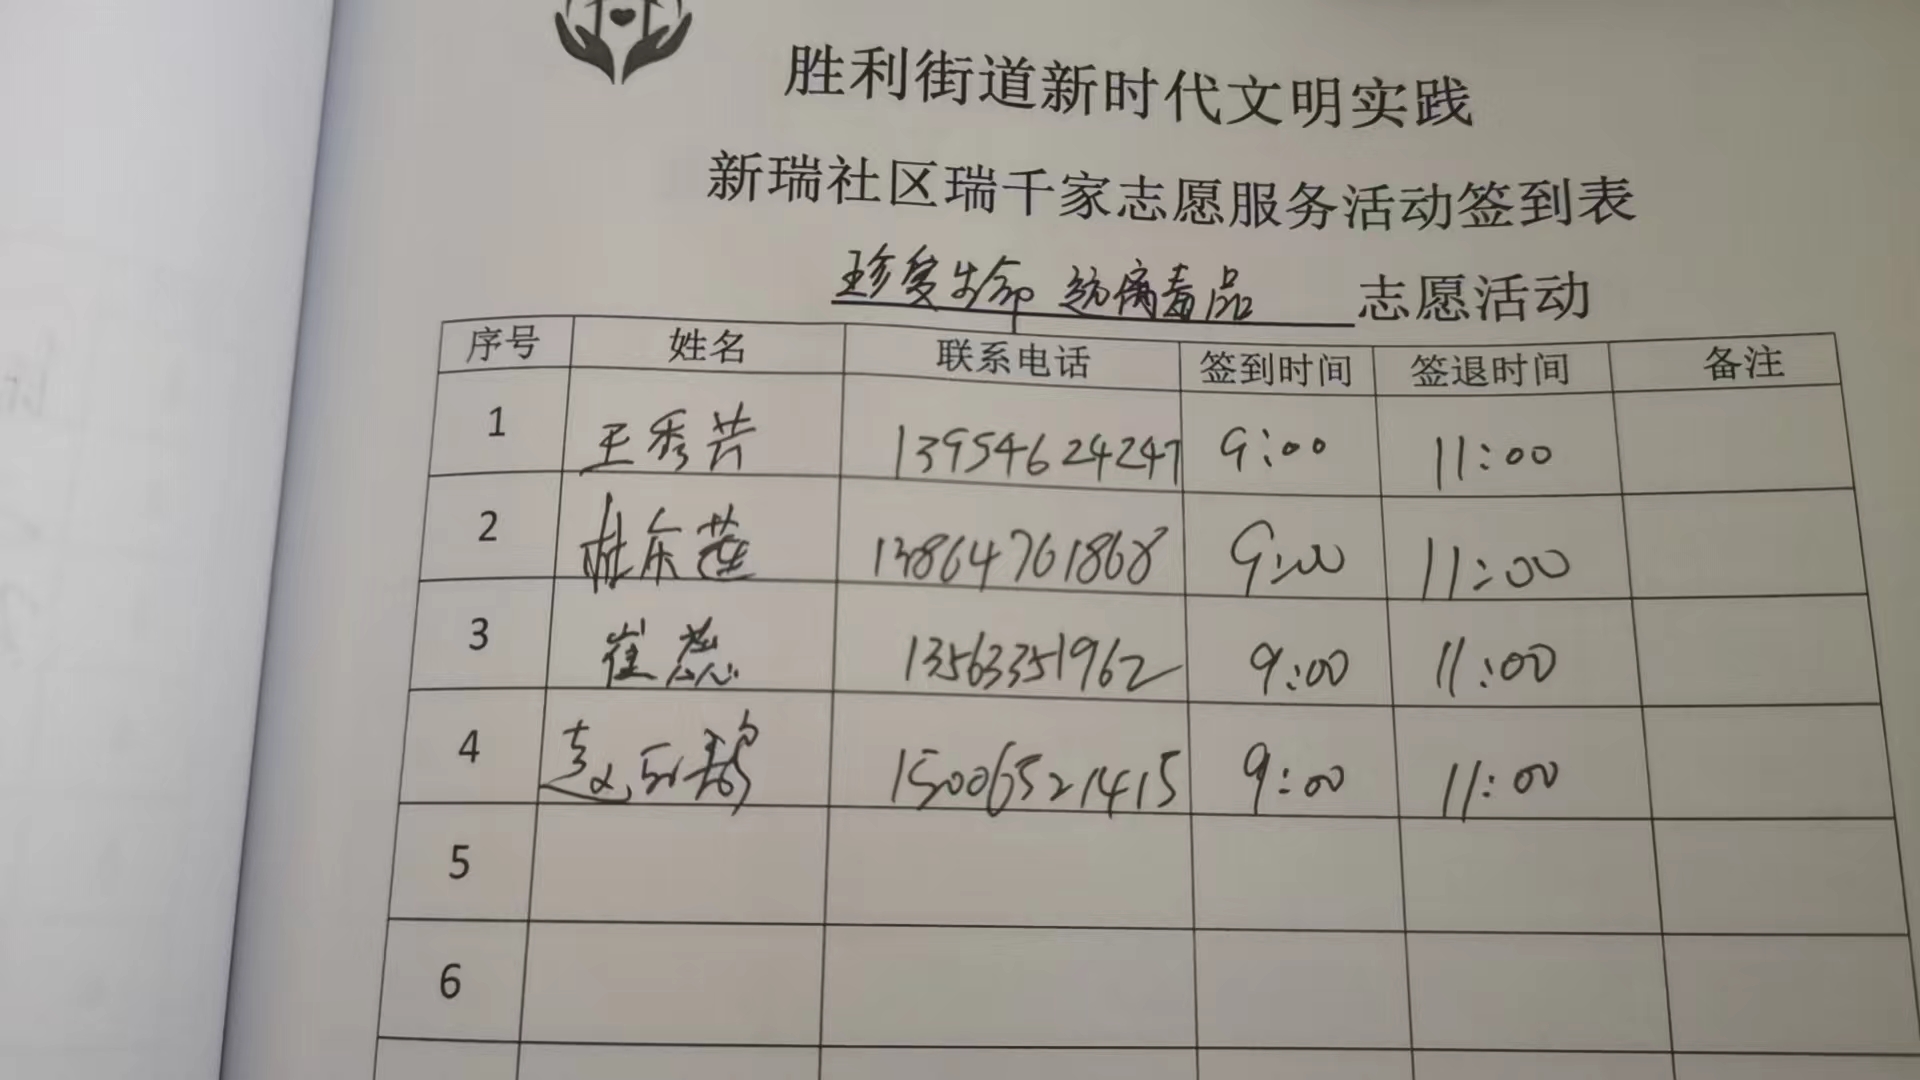 胜利街道新时代文明实践
新瑞社区瑞千家志愿服务活动签到表
珍爱生命 远离毒品 志愿活动
序号 姓名 联系电话 签到时间 签退时间 备注
1 王秀芳 13954624247 9:00 11:00
2 杜尔莲 13864761868 9:00 11:00
3 崔蕊 13563351962 9:00 11:00
4 赵 15006521415 9:00 11:00
5
6